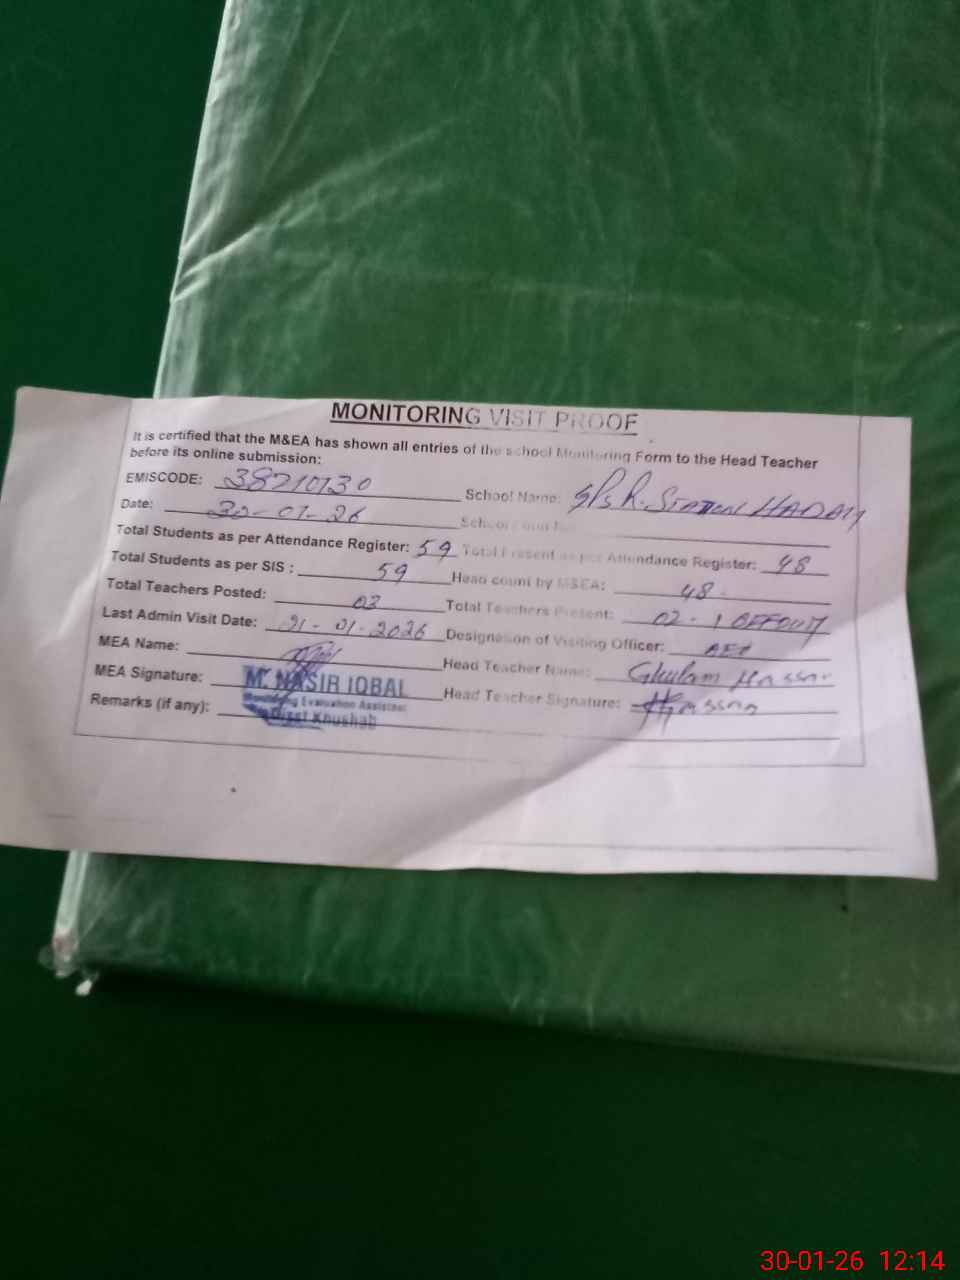 MONITORING VISIT PROOF
It is certified that the M&EA has shown all entries of the school Monitoring Form to the Head Teacher
before its online submission:
EMISCODE: 38710130 School Name: GPS R. STATION HADALI
Date: 30-01-26
Total Students as per Attendance Register: 59 Total Present as per Attendance Register: 48
Total Students as per SIS : 59 Head count by M&EA: 48
Total Teachers Posted: 03 Total Teachers Present: 02 - 1
Last Admin Visit Date: 21-01-2026 Designation of Visiting Officer: AEO
MEA Name: Head Teacher Name: Ghulam Hassan
MEA Signature: NASIR IQBAL Head Teacher Signature: Hassan
Monitoring Evaluation Assistant
Remarks (if any): Distt Khushab
30-01-26 12:14